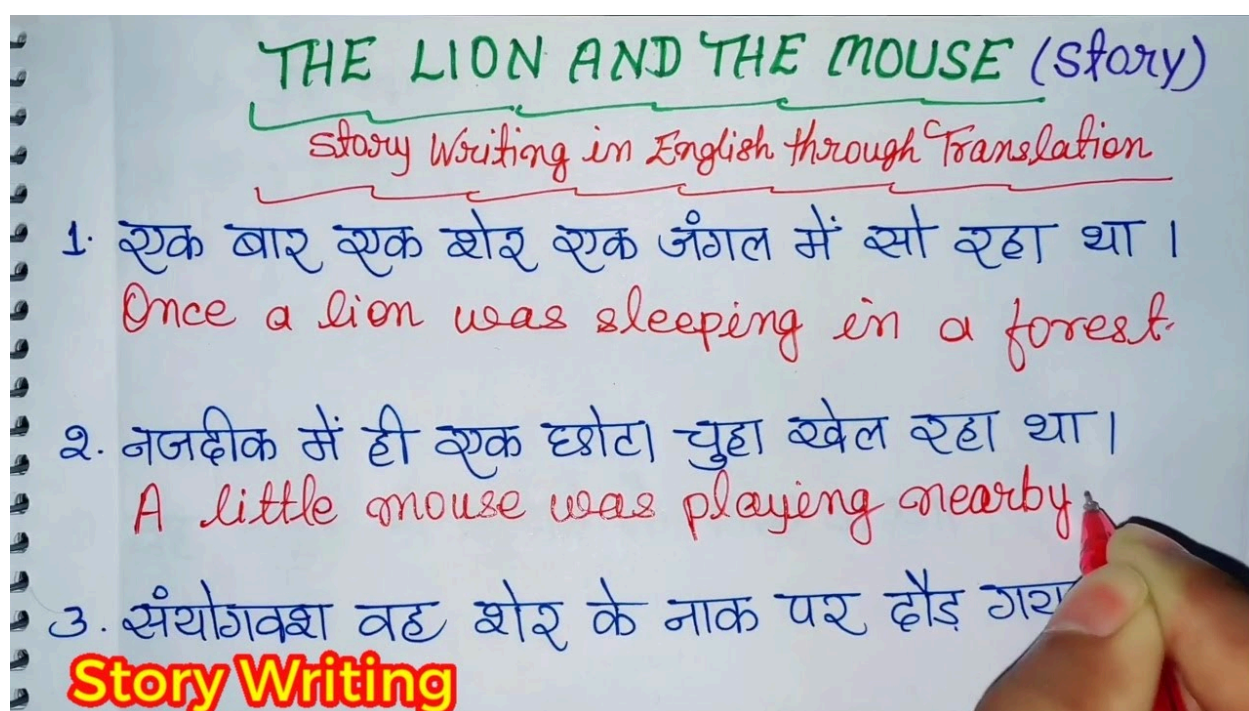 THE LION AND THE MOUSE (Story)
Story Writing in English through Translation
1. एक बार एक शेर एक जंगल में सो रहा था ।
Once a lion was sleeping in a forest.
२. नजदीक में ही एक छोटा चुहा खेल रहा था ।
A little mouse was playing nearby
३. संयोगवश वह शेर के नाक पर दौड़
Story Writing